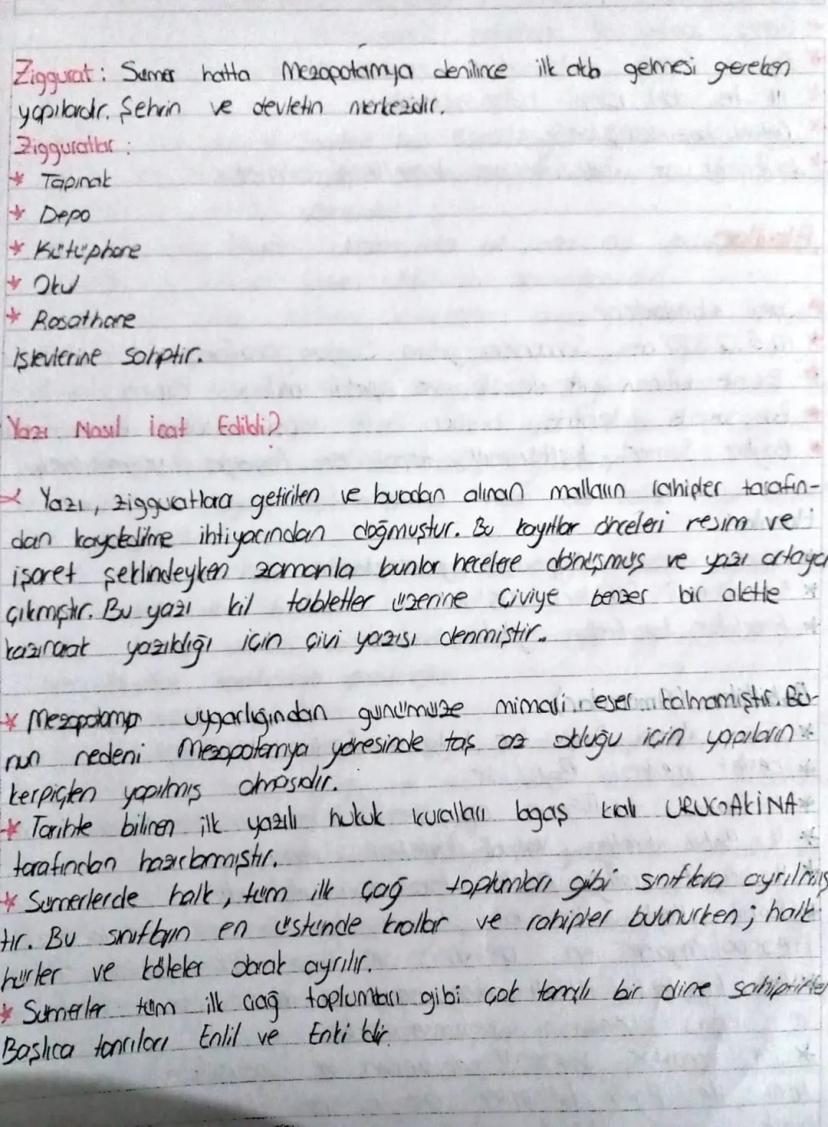 Ziggurat: Sümer hatta Mezopotamya denilince ilk akla gelmesi gereken
yapılardır. Şehrin ve devletin merkezidir.
Zigguratlar:
* Tapınak
* Depo
* Kütüphane
* Okul
* Rasathane
işlevlerine sahiptir.
Yazı Nasıl İcat Edildi?
* Yazı, zigguratlara getirilen ve buradan alınan malların rahipler tarafın-
dan kaydedilme ihtiyacından doğmuştur. Bu kayıtlar önceleri resim ve
işaret şeklindeyken zamanla bunlar hecelere dönüşmüş ve yazı ortaya
çıkmıştır. Bu yazı kil tabletler üzerine çiviye benzer bir aletle
kazınarak yazıldığı için çivi yazısı denmiştir.
* Mezopotamya uygarlığından günümüze mimari eser kalmamıştır. Bu-
nun nedeni Mezopotamya yöresinde taş az olduğu için yapıların
kerpiçten yapılmış olmasıdır.
* Tarihte bilinen ilk yazılı hukuk kuralları lagaş kralı URUGAKİNA
tarafından hazırlanmıştır.
* Sümerlerde halk, tüm ilk çağ toplumları gibi sınıflara ayrılmış
tır. Bu sınıfların en üstünde krallar ve rahipler bulunurken; halk
hürler ve köleler olarak ayrılır.
* Sümerler tüm ilk çağ toplumları gibi çok tanrılı bir dine sahiptirler
Başlıca tanrıları Enlil ve Enki'dir.